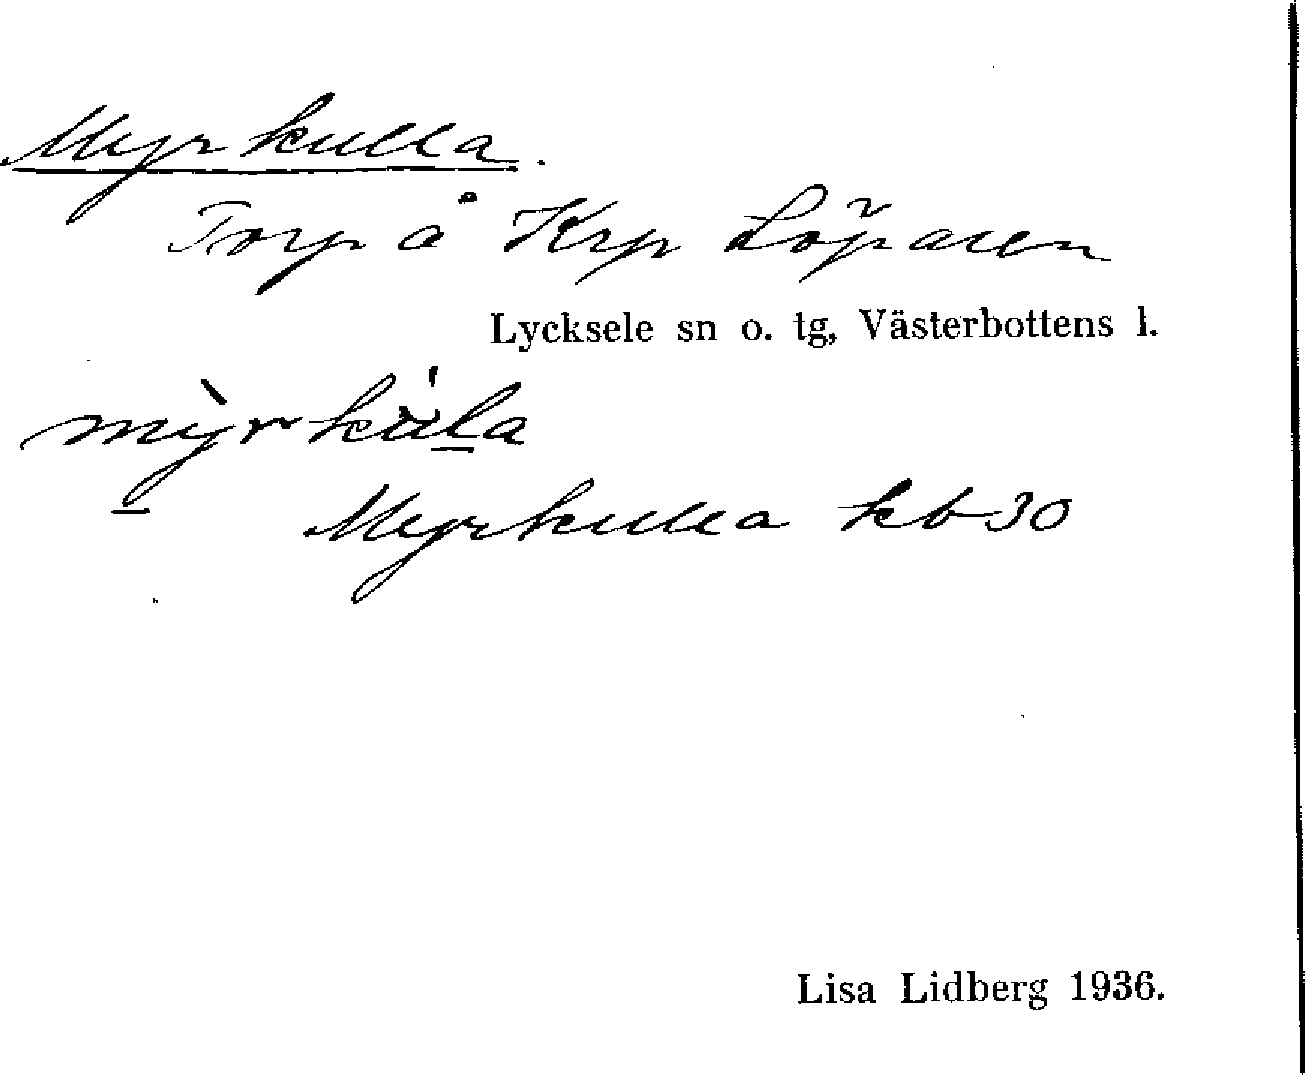 Myrkulla.
Torp å Krp Löparen
Lycksele sn o. tg, Västerbottens l.
mỳrkúla
Myrkulla kb 30
Lisa Lidberg 1936.